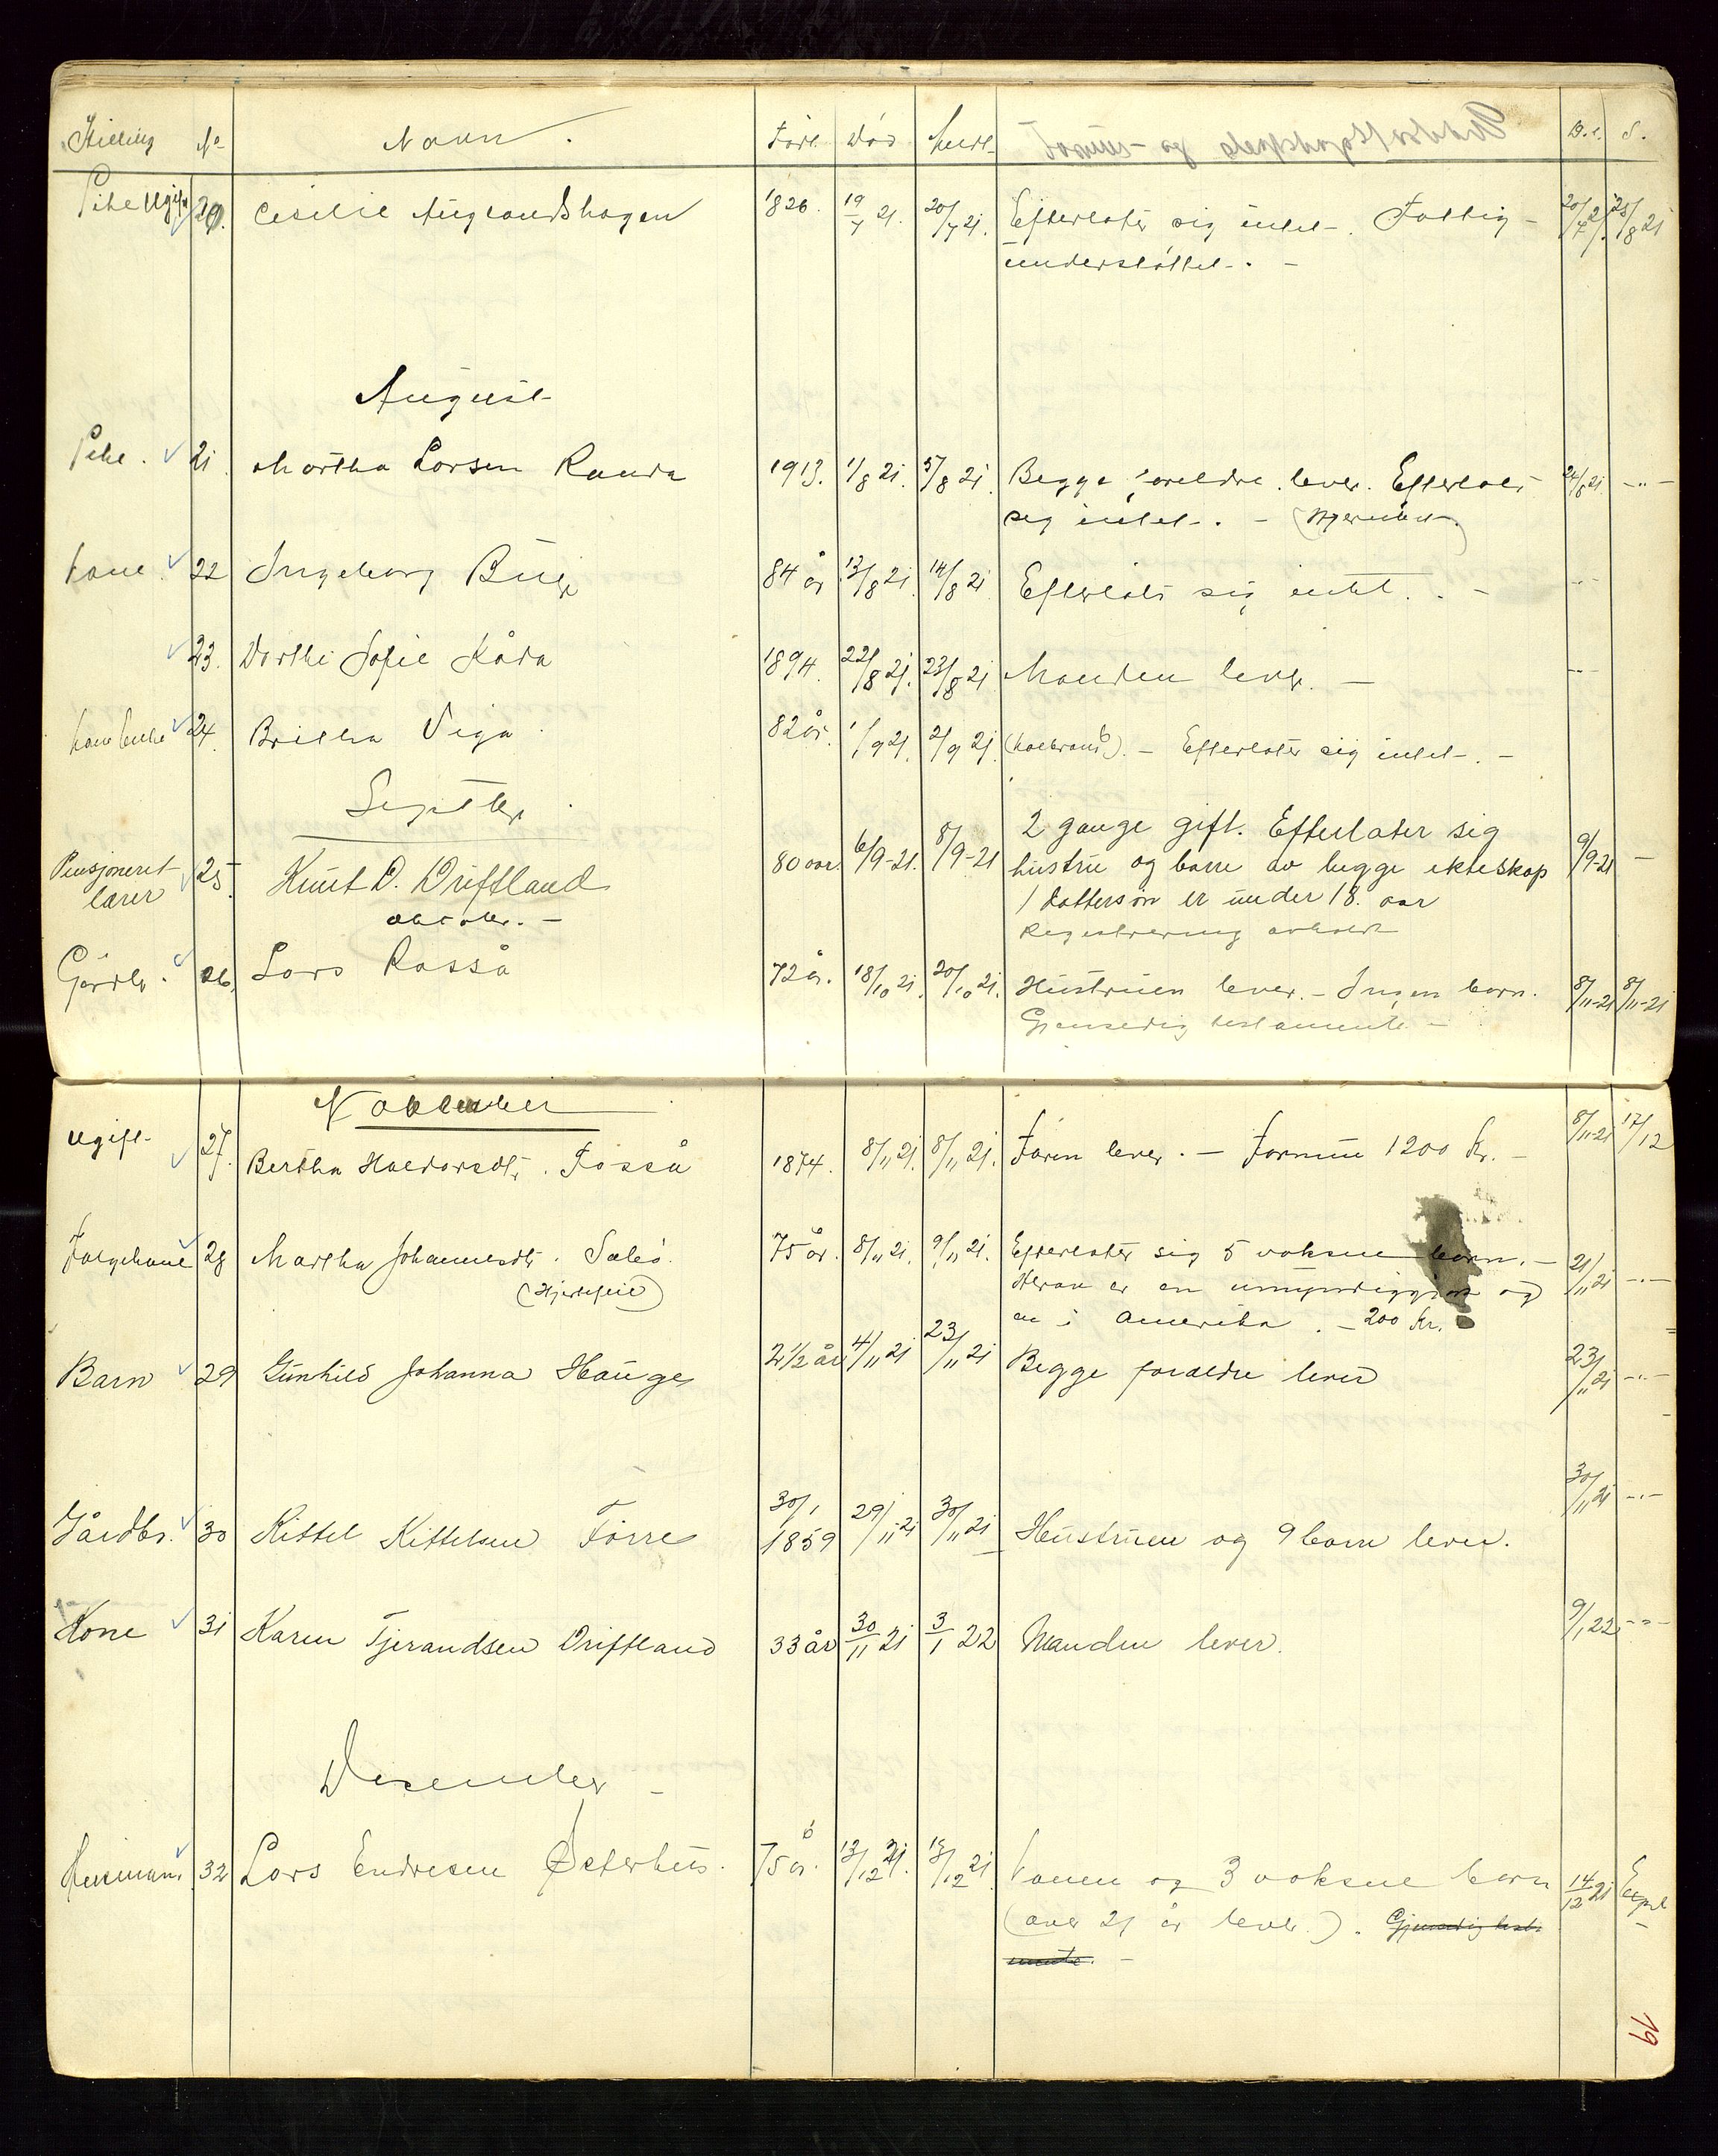 Stilling No Navn. Født Død Anml. D. s. S.
Pike Ugift 20. Cesilie Auglandshagen 1826. 19/7 21. 20/7 21. Efterlater sig intet. Fattig- 20/7 21. 25/8 21
understøttet. -
August
Pike. 21. Martha Larsen Rauda 1913. 1/8 21. 5/8 21. Begge foreldre lever. Efterlater 24/8 21 -"-
sig intet. -
Kone. 22 Ingeborg Bue 84 år 13/8 21. 14/8 21 Efterlater sig intet. - -"-
23. Dorthe Sofie Kåda 1894. 22/8 21. 23/8 21 Manden lever. - -"-
24. Britha Viga 82 år. 1/9 21. 2/9 21. (Koldbrand). - Efterlater sig intet. -
Septbr
2 gange gift. Efterlater sig
Pensjoneret 25. Knut D. Driftland 80 aar. 6/9-21. 8/9-21 hustru og barn av begge ekteskap 9/9-21 -
lærer 1 dattersøn er under 18. aar
October. - Registrering avholdt
Gårdbr. 26. Lars Rasså 72 år. 18/10 21. 20/10 21. Hustruen lever. - Ingen barn. 8/11-21 8/11-21
Gjensidig testamente -
November
Ugift 27. Bertha Haldorsdtr. Fosså 1874. 8/11 21. 8/11 21. Faren lever. - Formue 1200 Kr. - 8/11-21 17/12
Folgekone 28 Martha Johannesdtr. Valø. 75 år. 8/11 21. 9/11 21. Efterlater sig 5 voksne barn. - 21/11 21 -"-
(Hjertefeil) Herav er en umyndiggjort og
en i Amerika. - 200 Kr.
Barn 29 Gunhild Johanna Hauge 2 1/2 år 4/11 21 23/11 21 Begge foraeldre lever 23/11 21 -"-
Gårdbr. 30 Kittel Kittelsen Førre 30/1 1859 29/11-21 30/11 21 Hustruen og 9 barn lever. 30/11 21 -"-
Kone 31 Karen Tjerandsen Driftland 33 år 30/11 21 3/1 22 Manden lever. 9/1 22. -"-
Desember -
Husmann 32 Lars Endresen Østerhus. 75 år. 13/12 21. 15/12 21 Konen og 3 voksne barn 14/12 21
(over 21 år lever.). Gjensidig testa-
mente. -
19